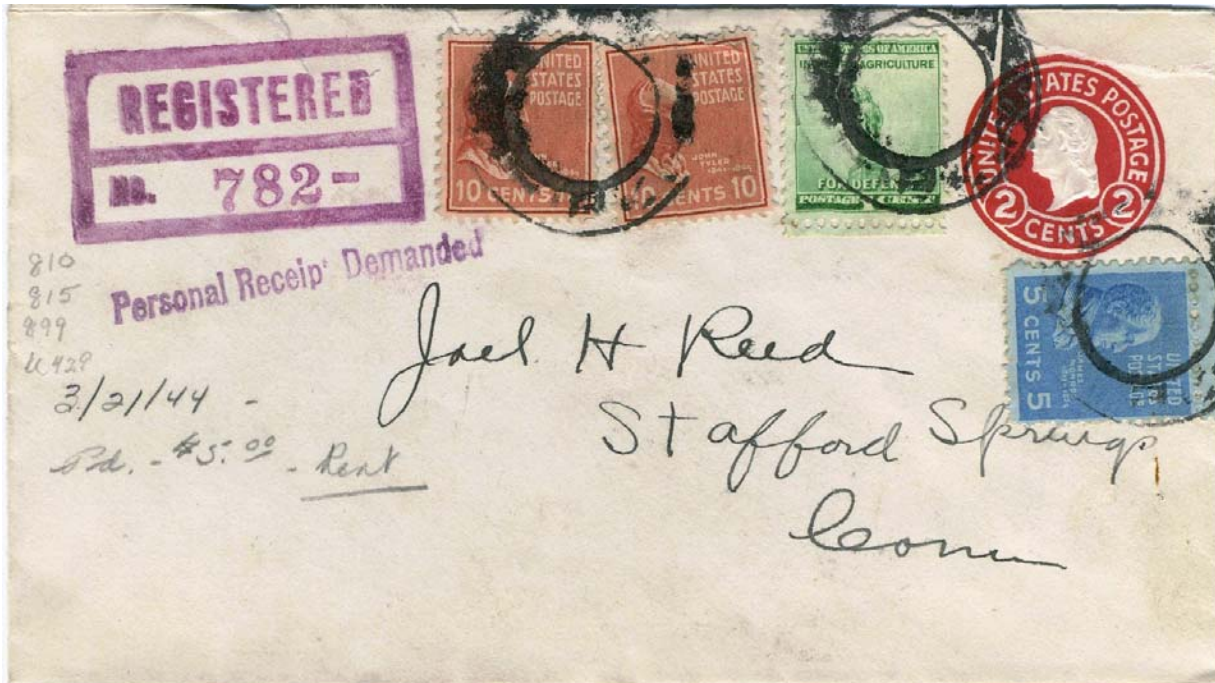 REGISTERED
NO. 782-
Personal Receip' Demanded
UNITED
STATES
POSTAGE
10 CENTS
UNITED
STATES
POSTAGE
JOHN
TYLER
CENTS 10
UNITED STATES OF AMERICA
INDUSTRY AGRICULTURE
FOR DEFENSE
POSTAGE 1 CENT
UNITED STATES POSTAGE
2 CENTS 2
5 CENTS 5
UNITED
STATES
POSTAGE
810
815
899
U429
3/21/44 -
Pd. - $5.00 - Rent
Joel H Reed
Stafford Springs
Conn